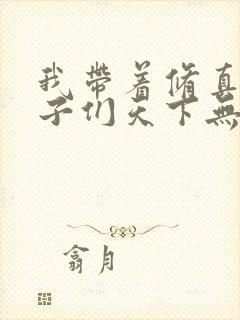 我带着修真
子们天下無
翕月